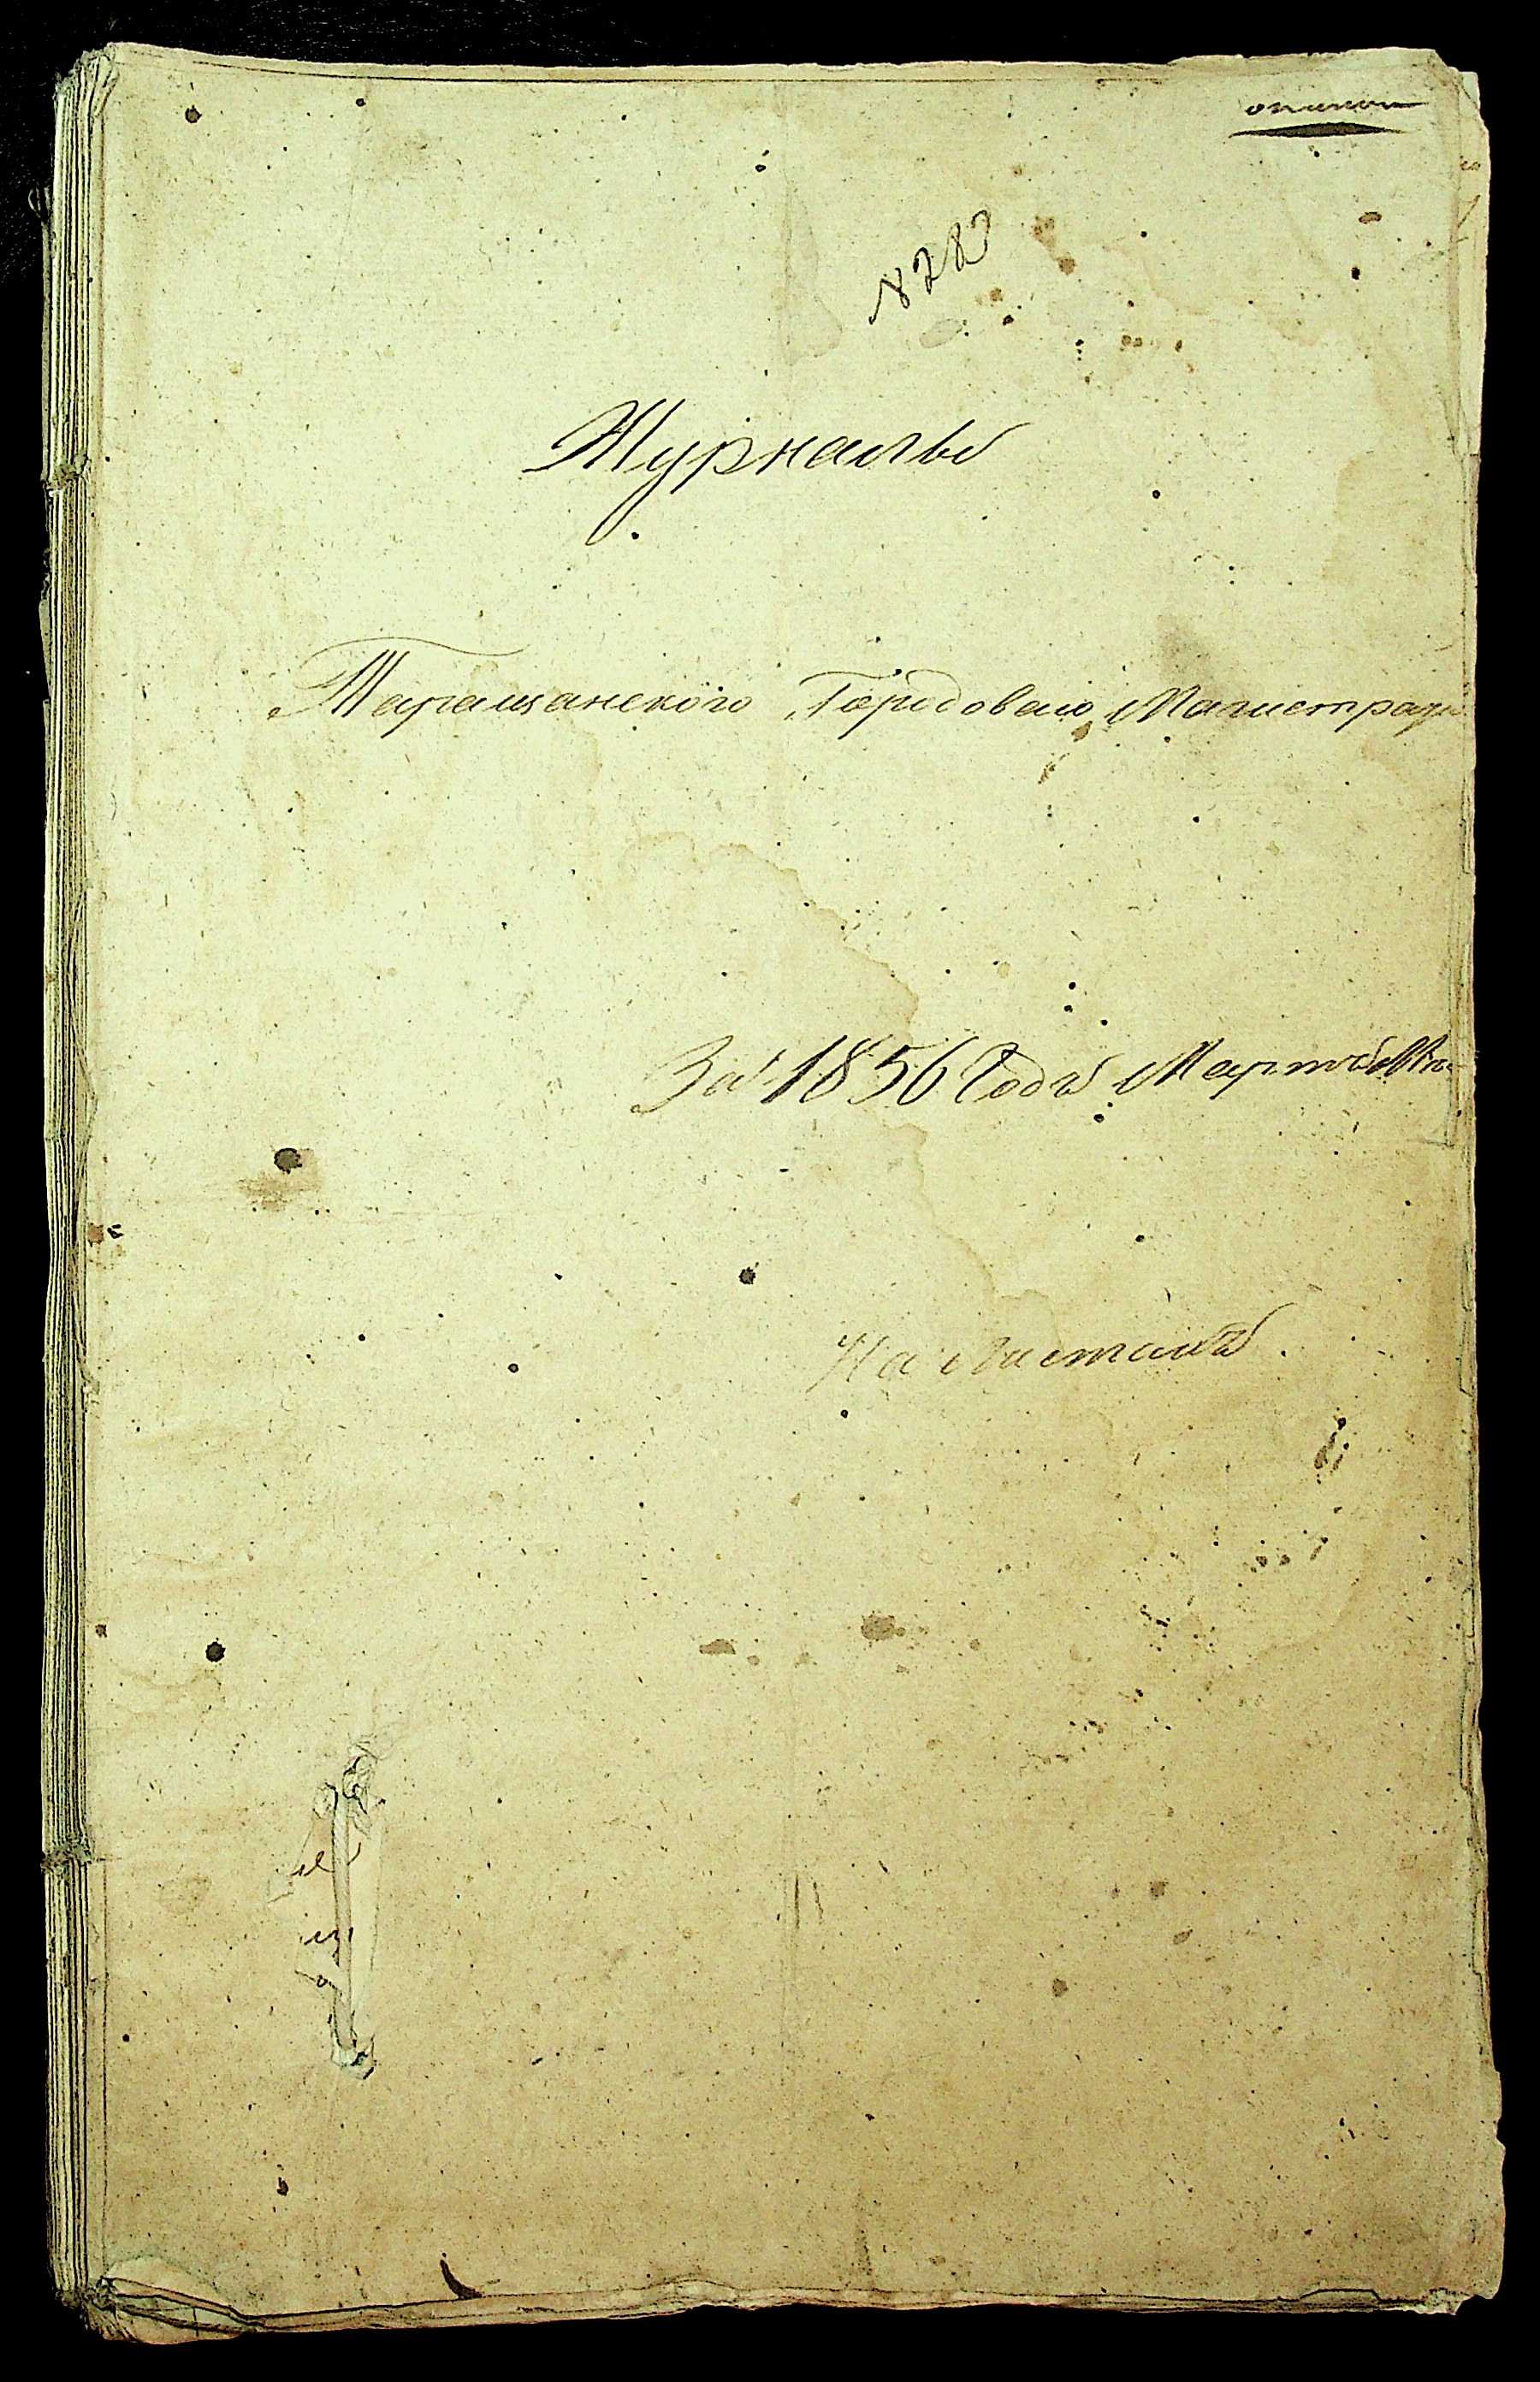 8282
Журналы
Таращанского Городоваго Магистрата
За 1856 Годъ Мартъ М
На листахъ